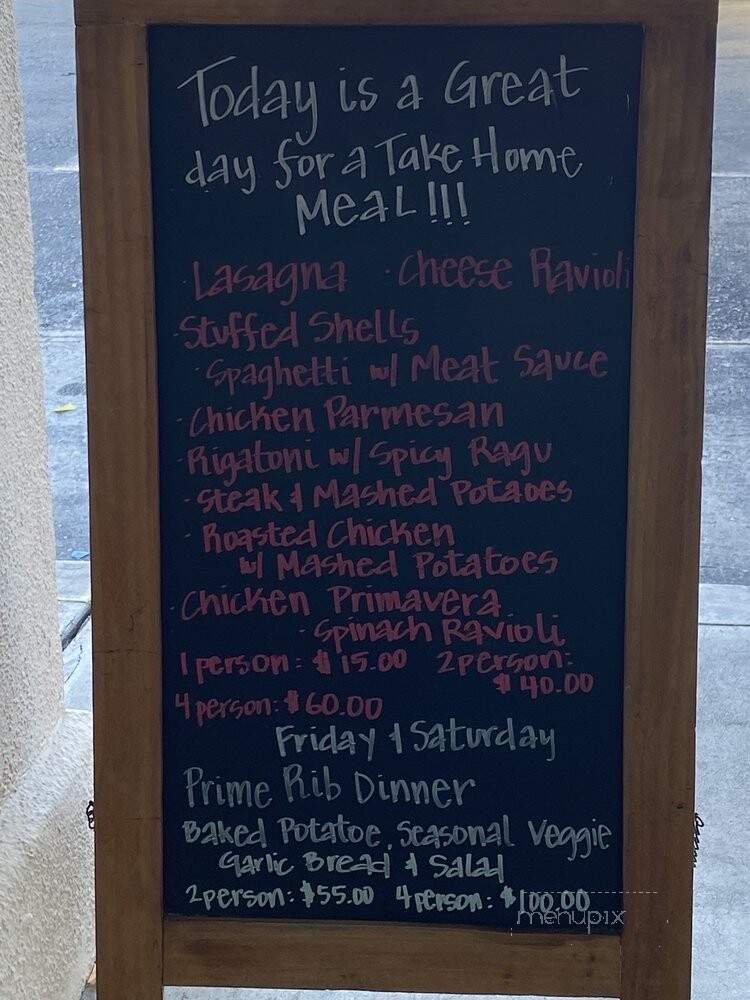 Today is a Great
day for a Take Home
Meal!!!
· Lasagna · Cheese Ravioli
· Stuffed Shells
· Spaghetti w/ Meat Sauce
· Chicken Parmesan
· Rigatoni w/ Spicy Ragu
· Steak & Mashed Potatoes
· Roasted Chicken
w/ Mashed Potatoes
· Chicken Primavera
· Spinach Ravioli
1 person: $15.00 2 person:
$40.00
4 person: $60.00
Friday & Saturday
Prime Rib Dinner
Baked Potatoe, Seasonal Veggie
Garlic Bread & Salad
2 person: $55.00 4 person: $100.00
menupix